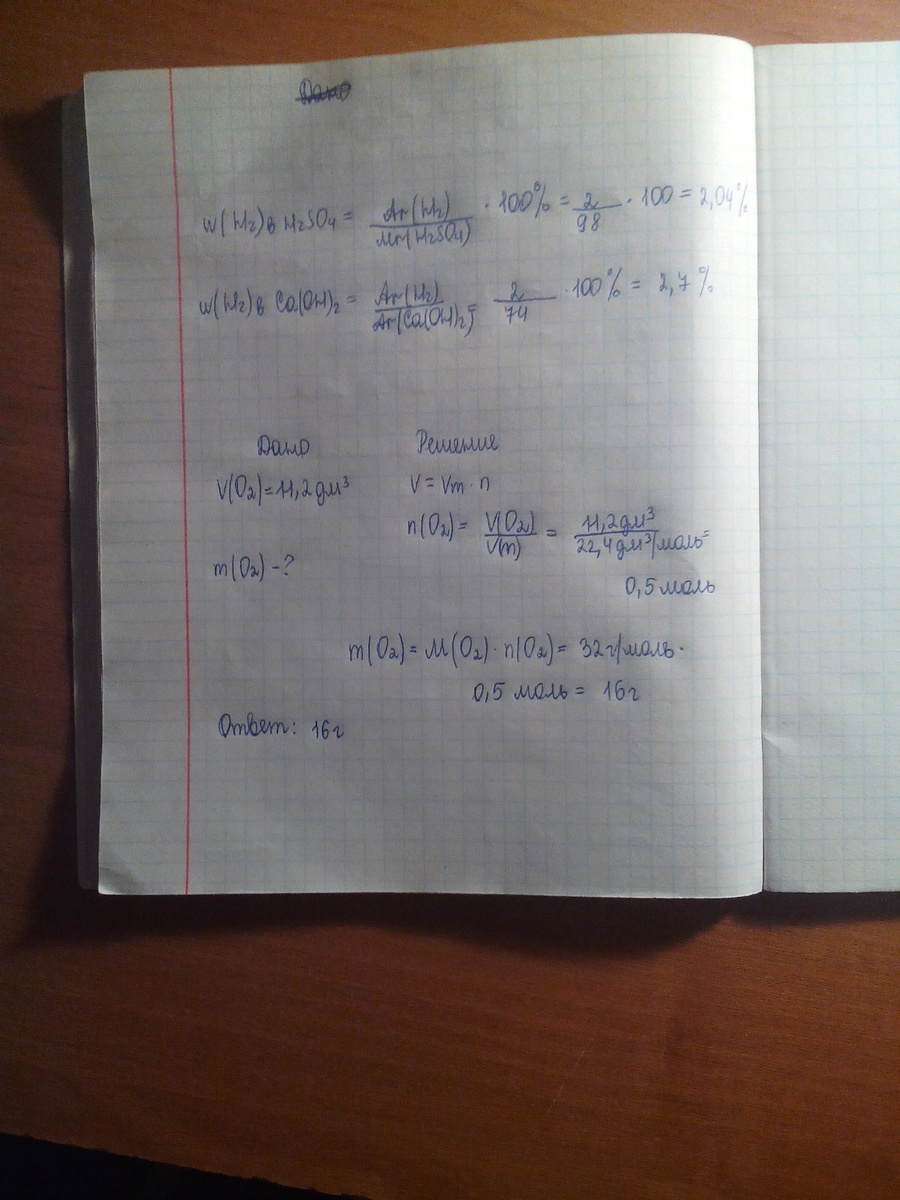 Дано
w(H₂) в H₂SO₄ = Ar(H₂) / Mr(H₂SO₄) · 100% = 2 / 98 · 100 = 2,04%
w(H₂) в Ca(OH)₂ = Ar(H₂) / Ar(Ca(OH)₂) = 2 / 74 · 100% = 2,7%
Дано Решение
V(O₂)=11,2 дм³ V = Vm · n
n(O₂) = V(O₂) / V(m) = 11,2 дм³ / 22,4 дм³/моль =
m(O₂) -?
0,5 моль
m(O₂) = M(O₂) · n(O₂) = 32 г/моль ·
0,5 моль = 16г
Ответ: 16г